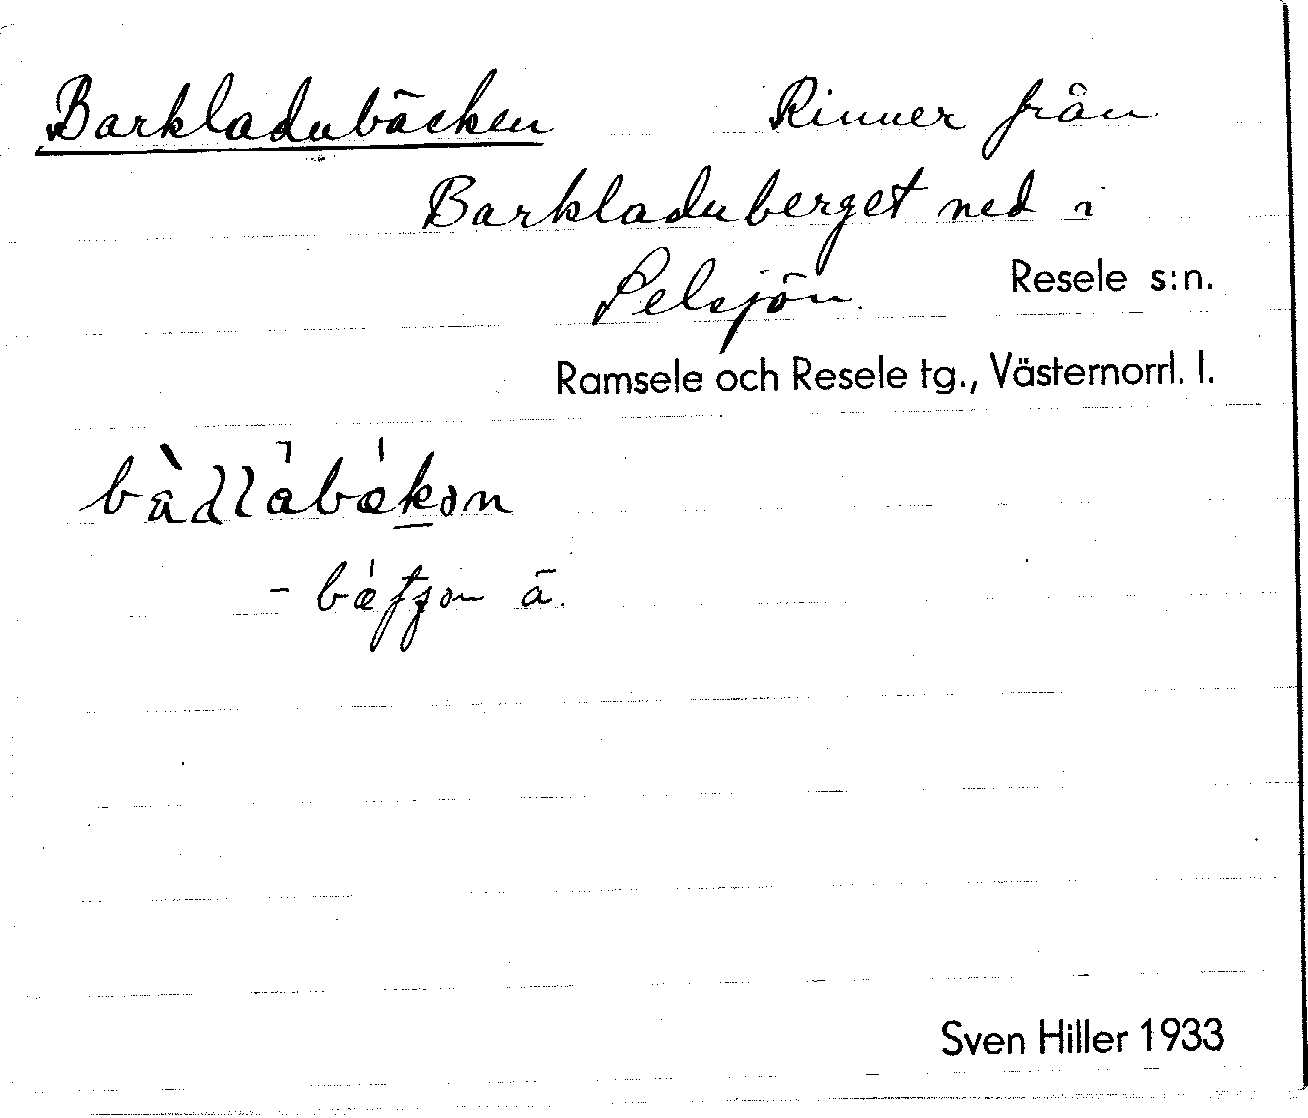 Barkladubäcken Rinner från
Barkladuberget ned i
Pelsjön.
Resele s:n.
Ramsele och Resele tg., Västernorrl. l.
Sven Hiller 1933